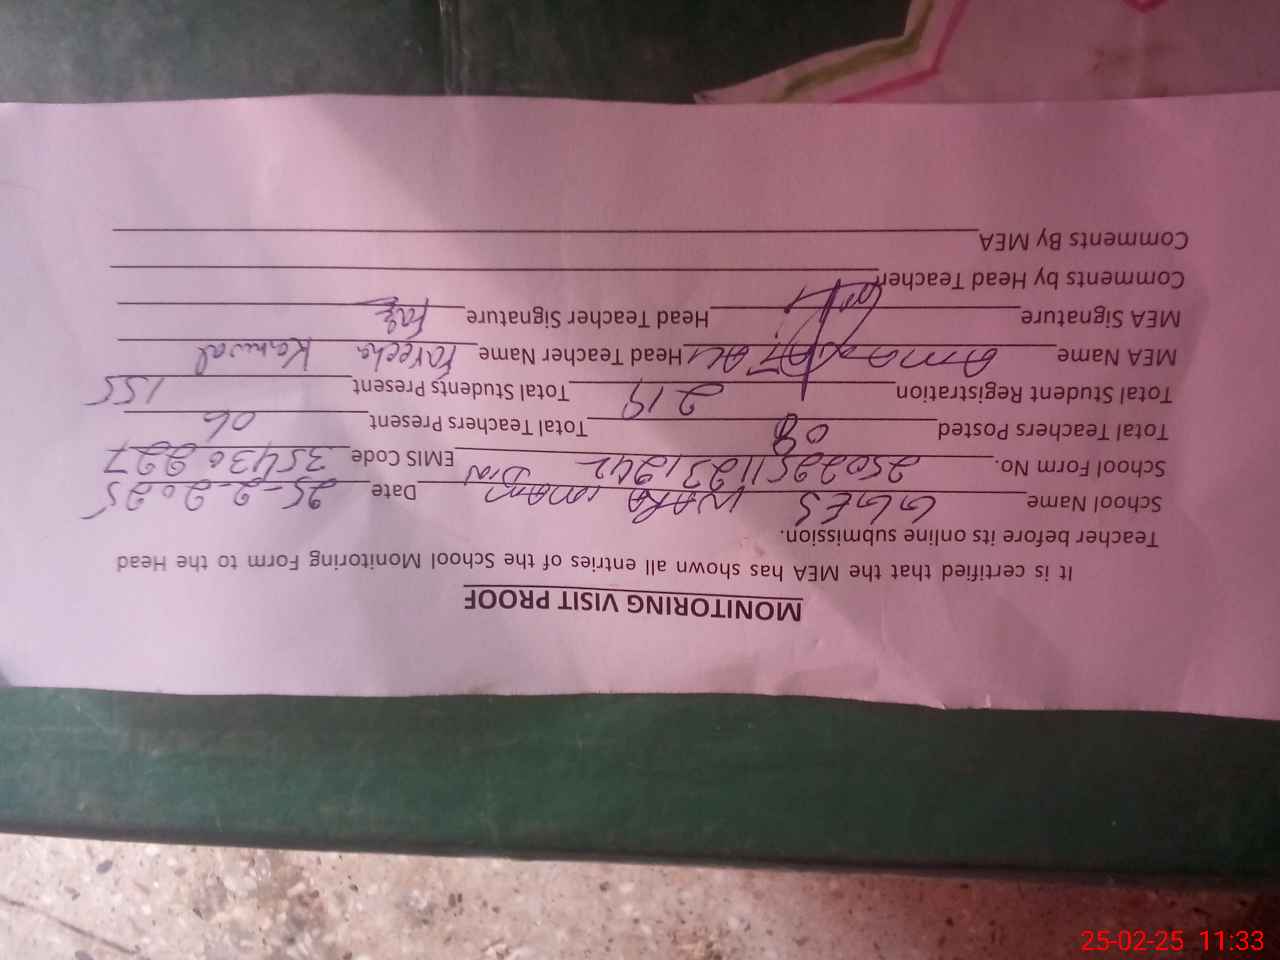 MONITORING VISIT PROOF
It is certified that the MEA has shown all entries of the School Monitoring Form to the Head
Teacher before its online submission.
School Name GGES WARA Date 25-2-2025
School Form No. EMIS Code 35430227
Total Teachers Posted 08 Total Teachers Present 06
Total Student Registration 219 Total Students Present 155
MEA Name Head Teacher Name Fareeha Kanwal
MEA Signature Head Teacher Signature
Comments by Head Teacher
Comments By MEA
25-02-25 11:33